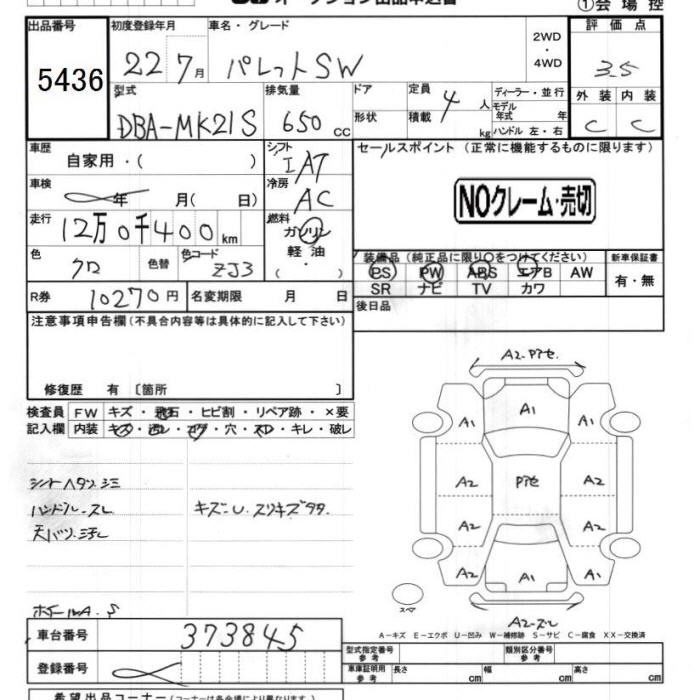 オークション出品申込書
①会場控
出品番号
5436
初度登録年月
22 7月
車名・グレード
パレットSW
2WD
・
4WD
評価点
3.5
型式
DBA-MK21S
排気量
650 cc
ドア
形状
定員
4人
積載
kg
ディーラー・並行
モデル
年式 年
ハンドル 左・右
外装 内装
C C
車歴
自家用・( )
シフト
IAT
セールスポイント (正常に機能するものに限ります)
NOクレーム・売切
車検
年 月( 日)
冷房
AC
走行
12万0千400km
燃料
ガソリン
軽油
( )
色
クロ
色替
色コード
ZJ3
装備品(純正品に限り○をつけてください)
新車保証書
PS PW ABS エアB AW
SR ナビ TV カワ
有・無
R券
10270円
名変期限 月 日
後日品
注意事項申告欄(不具合内容等は具体的に記入して下さい)
修復歴 有 〔箇所 〕
検査員
記入欄
FW キズ・飛石・ヒビ割・リペア跡・×要
内装 キズ・汚レ・コゲ・穴・スレ・キレ・破レ
ハンドルスレ
キズ-U.スリキズタタ
373845
車台番号
登録番号
A1
A1 A1
A2 A2
A2 A2
A2 A1 A1
スペア
A-キズ E-エクボ U-凹み W-補修跡 S-サビ C-腐食 XX-交換済
型式指定番号
参考
類別区分番号
参考
車庫証明用
参考
長さ cm 幅 cm 高さ cm
希望出品コーナー(コーナーは各会場により異なります)